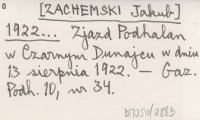 [ZACHEMSKI Jakub]
1922... Zjazd Podhalan
w Czarnym Dunajcu w dniu
13 sierpnia 1922. — Gaz.
Podh. 10, nr 34.